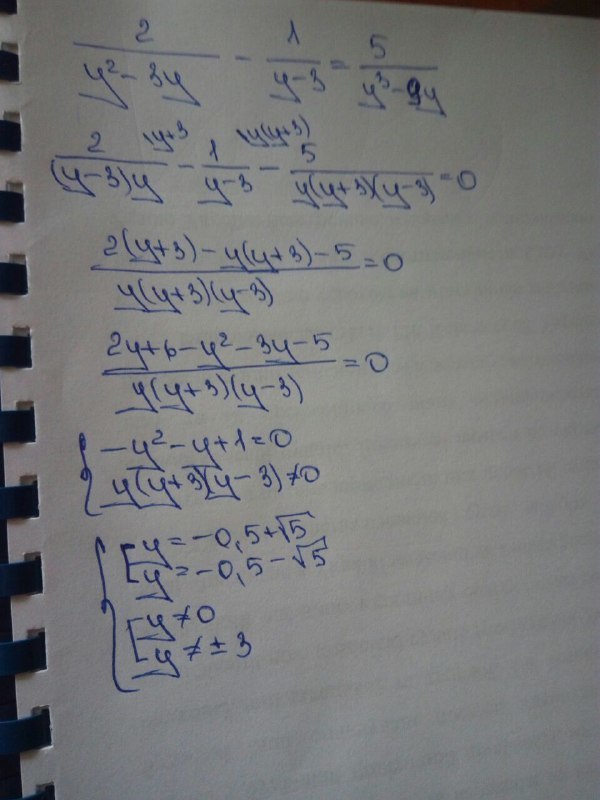 2/(y²-3y) - 1/(y-3) = 5/(y³-9y)
2\y+3/((y-3)y) - 1\y(y+3)/(y-3) - 5/(y(y+3)(y-3)) = 0
(2(y+3)-y(y+3)-5)/(y(y+3)(y-3)) = 0
(2y+6-y²-3y-5)/(y(y+3)(y-3)) = 0
{ -y²-y+1=0
y(y+3)(y-3)≠0
{ [ y=-0,5+√5
y=-0,5-√5
[ y≠0
y≠±3